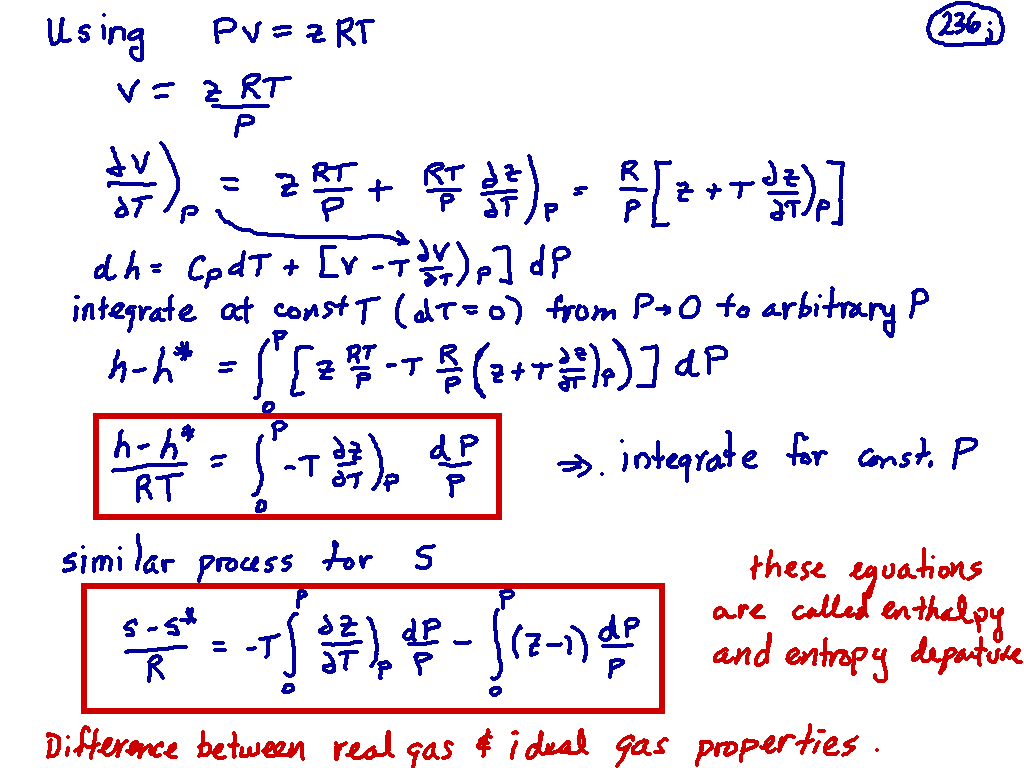 Using PV = z RT
236j
V = z RT / P
∂V/∂T)_P = z RT/P + RT/P ∂z/∂T)_P = R/P [z + T ∂z/∂T)_P]
dh = C_P dT + [V - T ∂V/∂T)_P] dP
integrate at const T (dT = 0) from P→0 to arbitrary P
h-h* = ∫_0^P [z RT/P - T R/P (z + T ∂z/∂T)_P)] dP
(h-h*)/RT = ∫_0^P -T ∂z/∂T)_P dP/P ⇒. integrate for const. P
similar process for S
(s-s*)/R = -T ∫_0^P ∂z/∂T)_P dP/P - ∫_0^P (z-1) dP/P
these equations
are called enthalpy
and entropy departure
Difference between real gas & ideal gas properties.